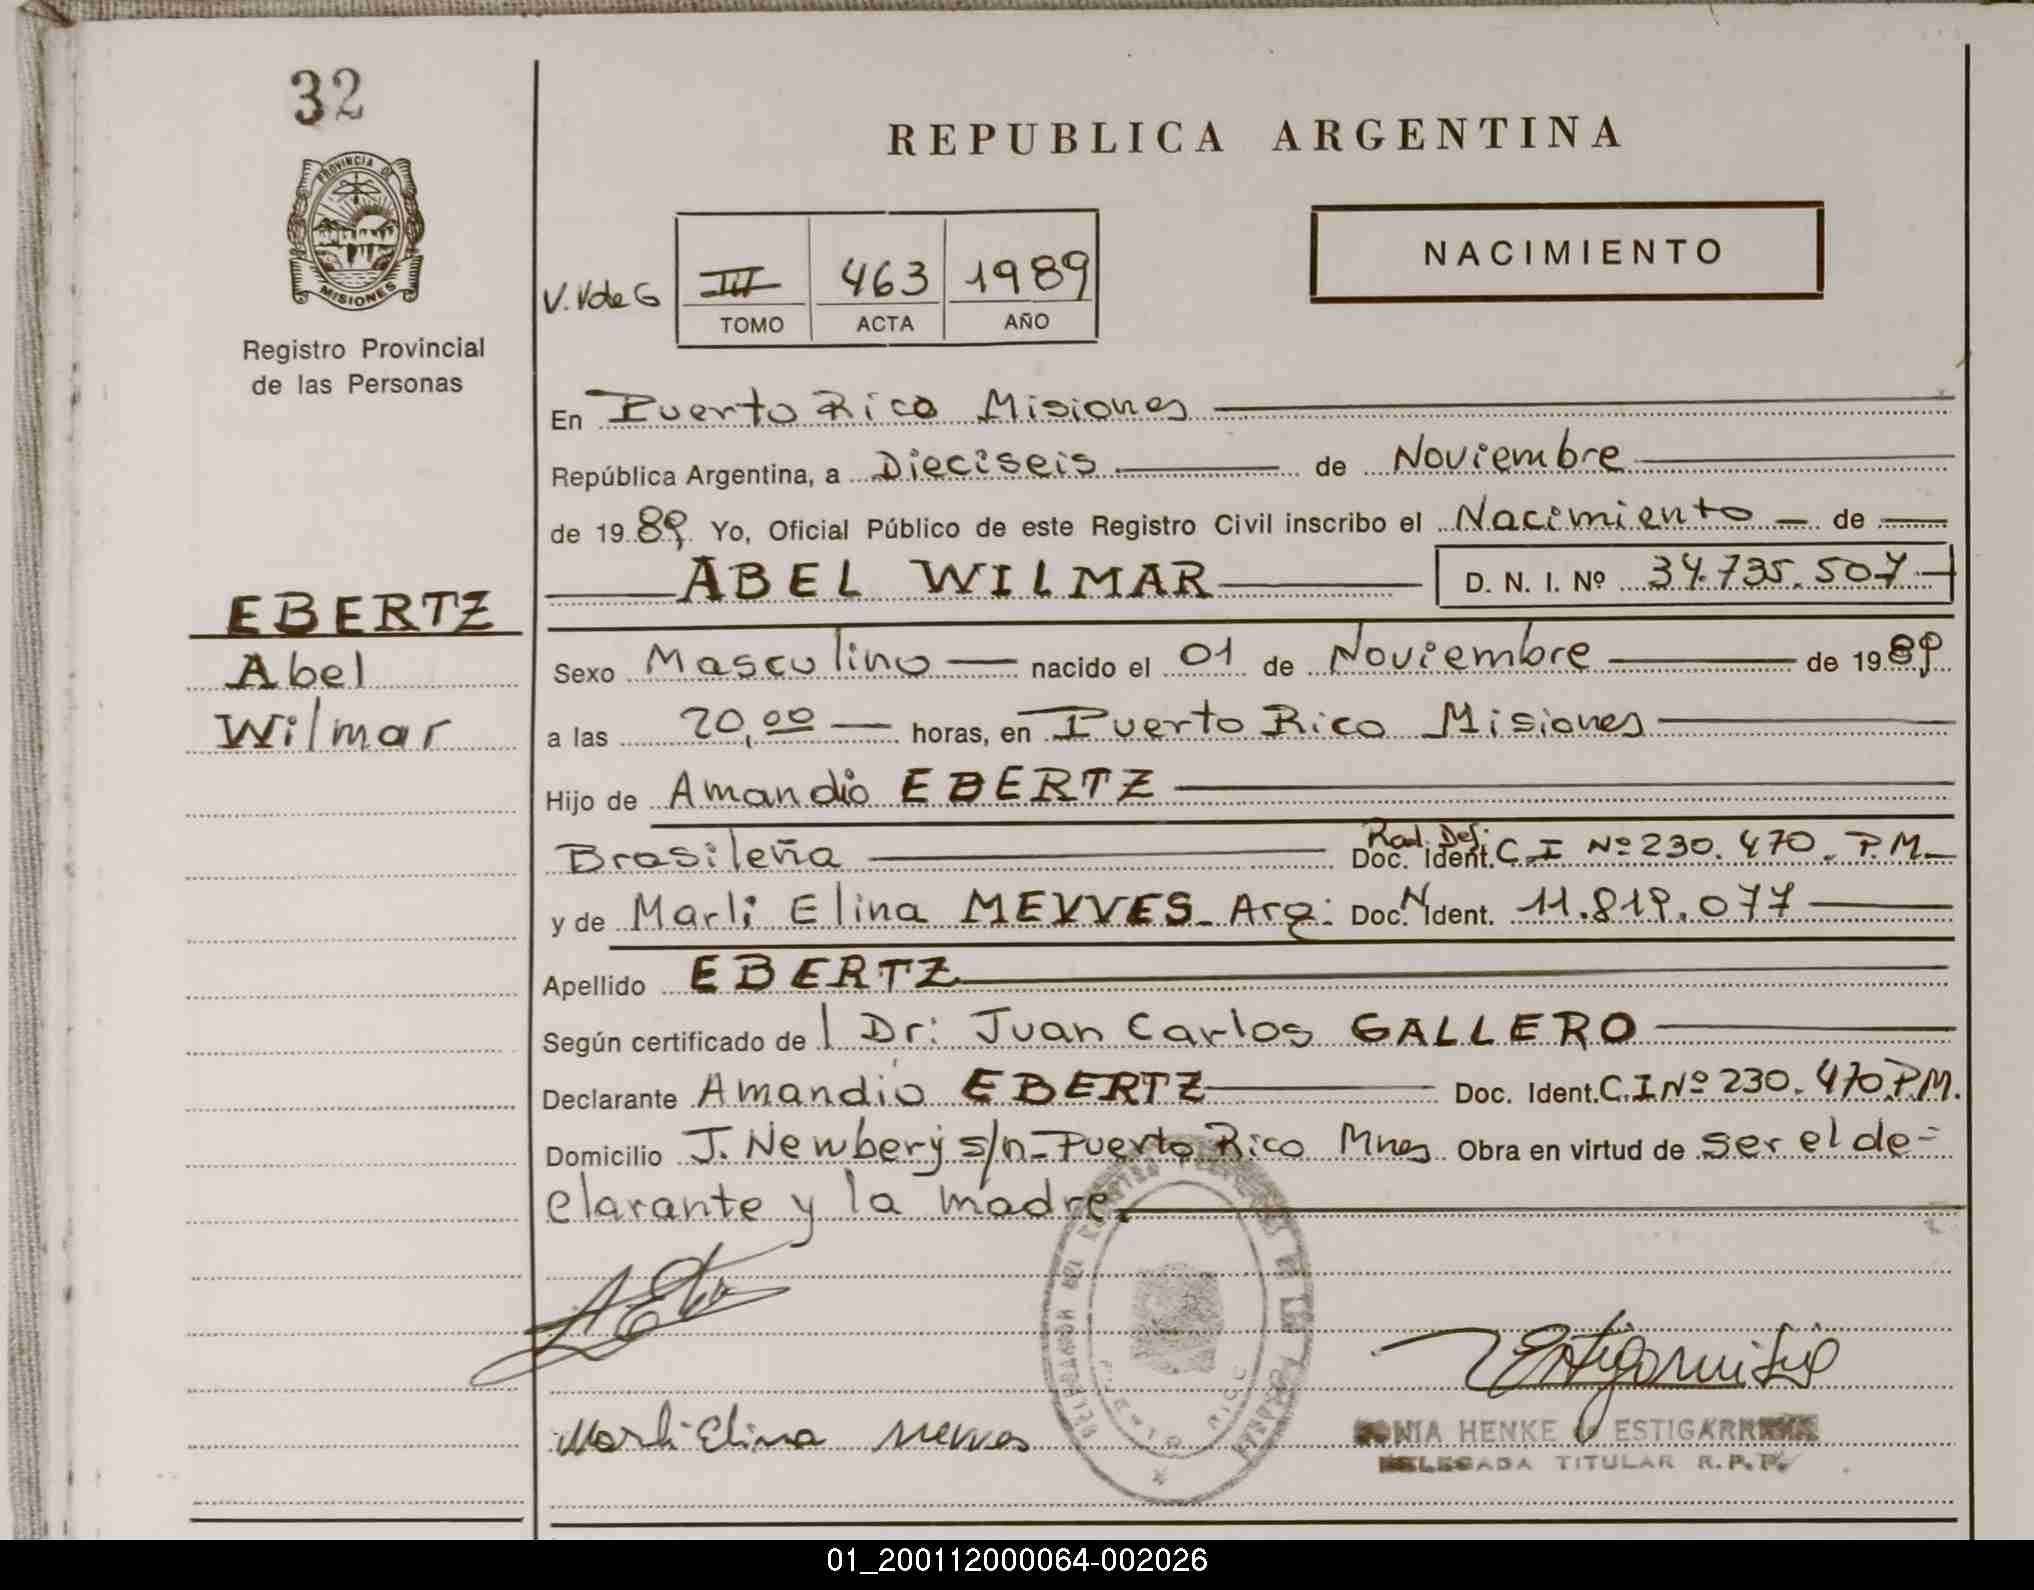 32
PROVINCIA DE
MISIONES
Registro Provincial
de las Personas
EBERTZ
Abel
Wilmar
REPUBLICA ARGENTINA
NACIMIENTO
V.V de G
III 463 1989
TOMO ACTA AÑO
En Puerto Rico Misiones
República Argentina, a Dieciseis de Noviembre
de 1989 Yo, Oficial Público de este Registro Civil inscribo el Nacimiento de
ABEL WILMAR D. N. I. Nº 34.735.507
Sexo Masculino nacido el 01 de Noviembre de 1989
a las 20,00 horas, en Puerto Rico Misiones
Hijo de Amandio EBERTZ
Brasileña Rad. Def. Doc. Ident. C.I Nº 230.470. P.M.
y de Marli Elina MEVVES Arg: Doc. N Ident. 11.819.077
Apellido EBERTZ
Según certificado de l Dr: Juan Carlos GALLERO
Declarante Amandio EBERTZ Doc. Ident. C.I Nº 230.470 P.M.
Domicilio J. Newbery s/n- Puerto Rico Mnes Obra en virtud de ser el de=
clarante y la madre.
Marli Elina Mevves
SONIA HENKE de ESTIGARRIBIA
DELEGADA TITULAR R.P.P.
01_200112000064-002026